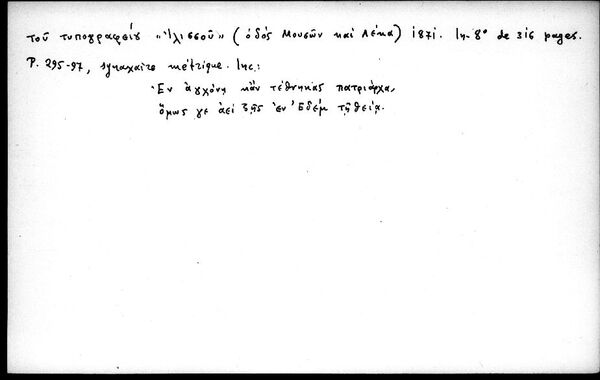 τοῦ τυπογραφείου "Ἰλισσοῦ" (ὁδός Μουσῶν καί Λέκα) 1871. In-8° de 316 pages.
P. 295-97, synaxaire métrique. Inc.:
Ἐν ἀγχόνῃ κἄν τέθνηκας πατριάρχα,
ὅμως γε ἀεί ζῇς ἐν Ἐδέμ τῇ θείᾳ.